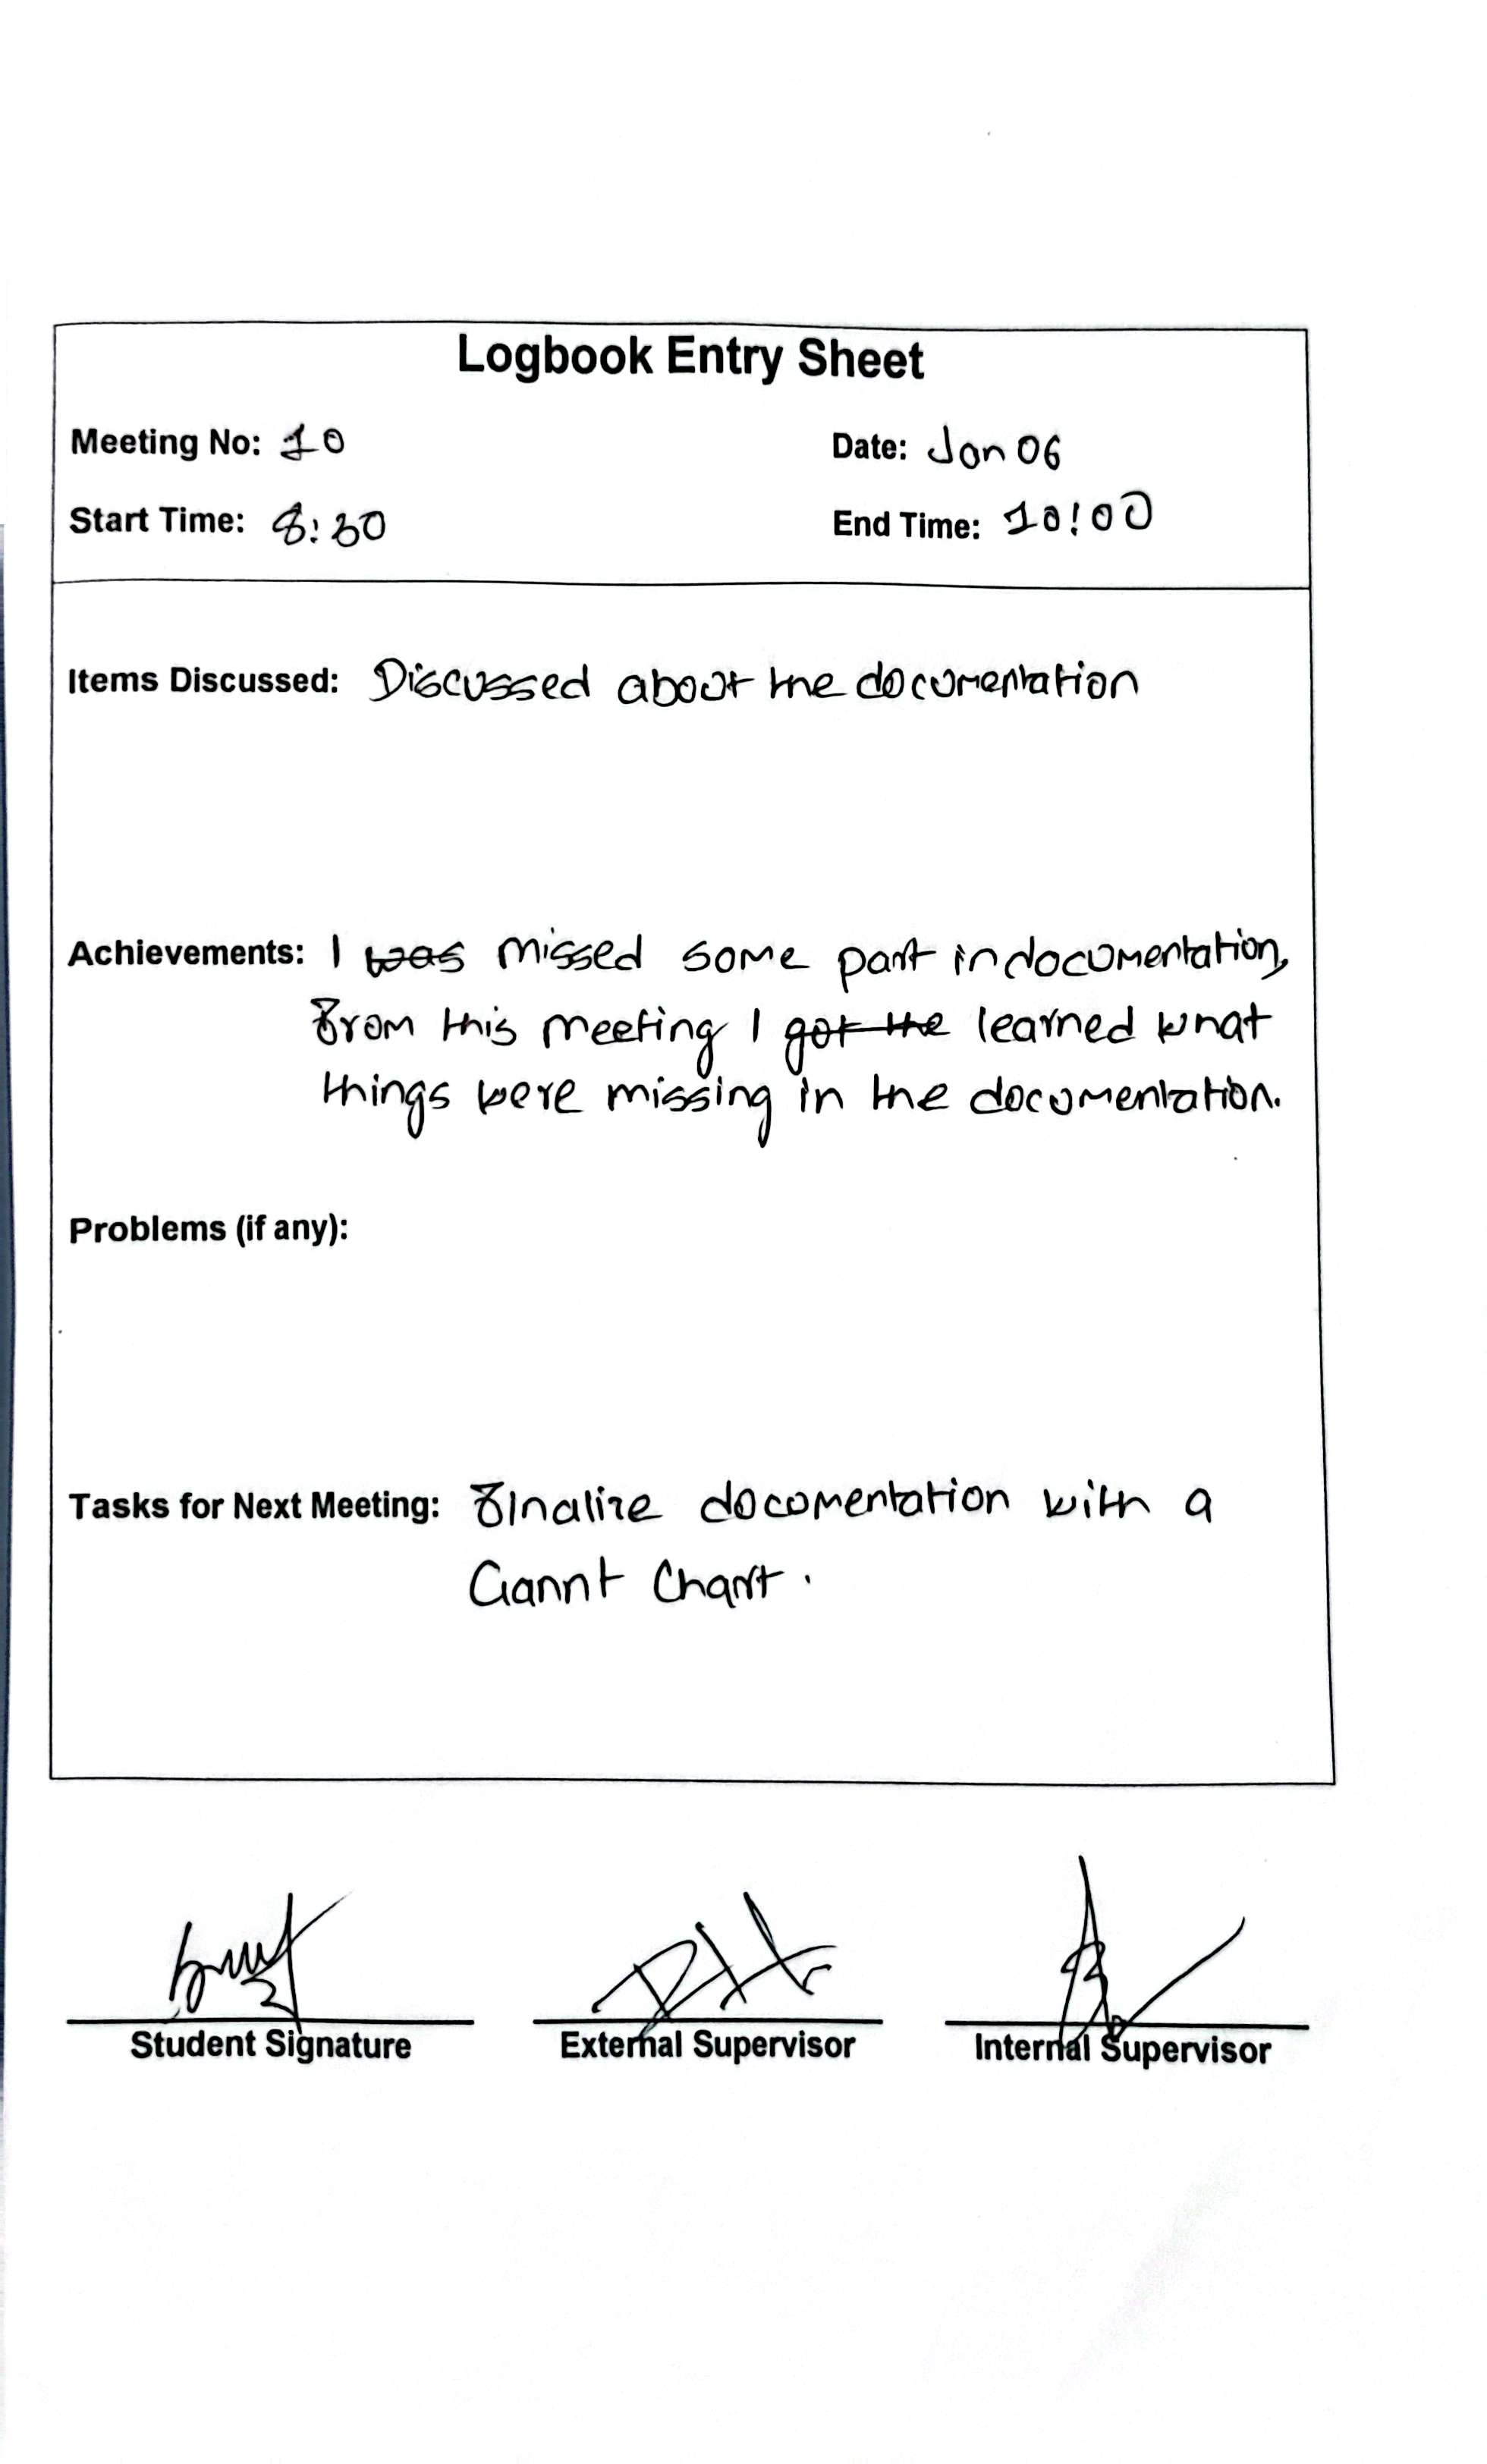 Logbook Entry Sheet
Meeting No: 10
Date: Jan 06
Start Time: 8:30
End Time: 10:00
Items Discussed: Discussed about the documentation
Achievements: I was missed some part in documentation,
From this meeting I got the learned what
things were missing in the documentation.
Problems (if any):
Tasks for Next Meeting: Finalize documentation with a
Gannt Chart.
Student Signature
External Supervisor
Internal Supervisor